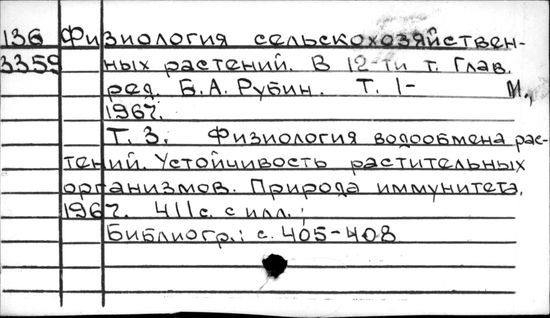 136 Физиология сельскохозяйствен-
3359 ных растений. В 12-ти т. Глав.
ред. Б.А. Рубин. Т. 1- М.,
1967.
Т. 3. Физиология водообмена рас-
тений. Устойчивость растительных
организмов. Природа иммунитета.
1967. 411 с. с илл.;
Библиогр.: с. 405-408